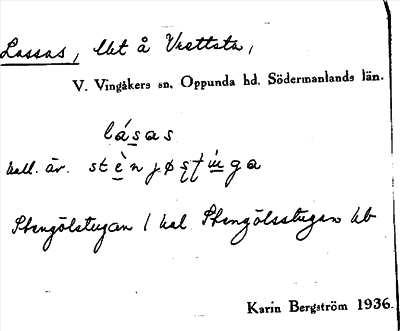 Lassas, lht å Vrettsta,
V. Vingåkers sn, Oppunda hd, Södermanlands län.
lásas
kall. är. stènjøstuga
Stengölstugan / kal Stengölsstugan kb
Karin Bergström 1936.